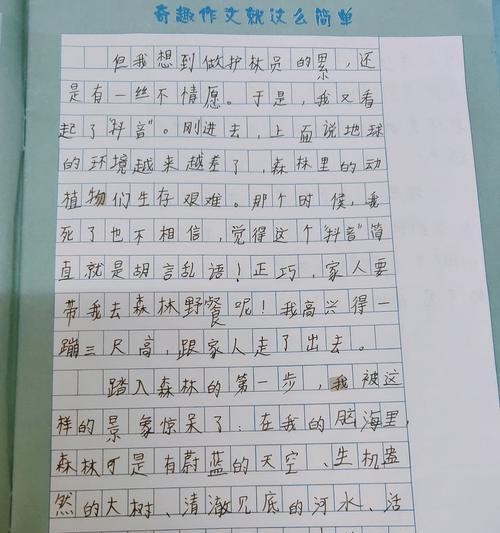 奇趣作文就这么简单
但我想到做护林员的累，还
是有一丝不情愿。于是，我又看
起了“抖音”。刚进去，上面说地球
的环境越来越差了，森林里的动
植物们生存艰难。那个时候，我
死了也不相信，觉得这个“抖音”简
直就是胡言乱语！正巧，家人要
带我去森林野餐呢！我高兴得一
蹦三尺高，跟家人走了出去。
踏入森林的第一步，我被这
样的景象惊呆了：在我的脑海里，
森林可是有蔚蓝的天空、生机盎
然的大树、清澈见底的河水、活